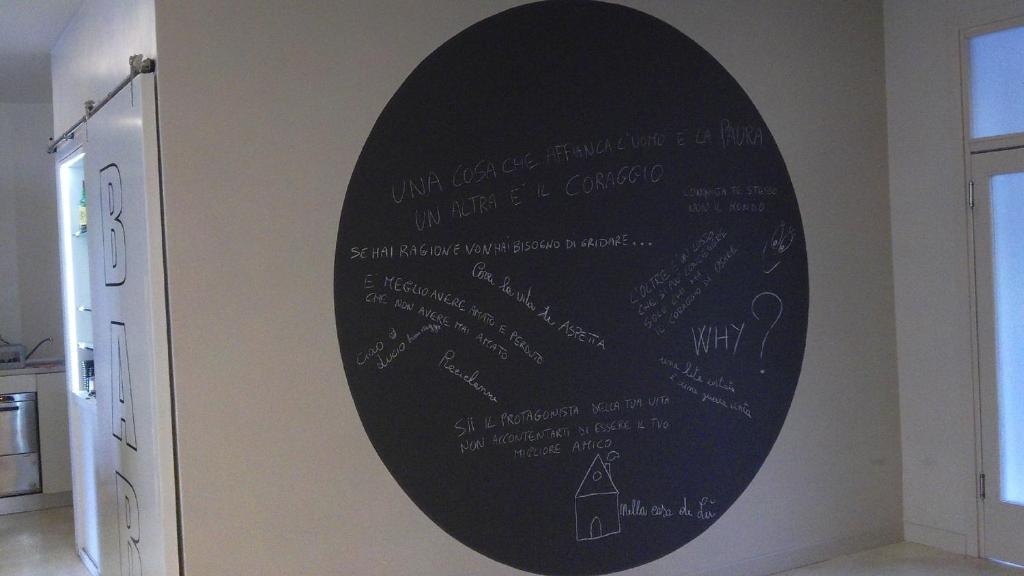 BAR
UNA COSA CHE AFFIANCA L'UOMO E LA PAURA
UN ALTRA E' IL CORAGGIO
CONQUISTA TE STESSO
NON IL MONDO
SE HAI RAGIONE NON HAI BISOGNO DI GRIDARE...
Corri la vita ti ASPETTA
L'OLTRE È UN LUSSO
CHE SI PUÒ CONCEDERE
SOLO CHI HA
IL CORAGGIO DI OSARE
E MEGLIO AVERE AMATO E PERDUTO
CHE NON AVERE MAI AMATO
CIAO
Lucio
WHY?
una lite evitata
È una guerra vinta
SII IL PROTAGONISTA DELLA TUA VITA
NON ACCONTENTARTI DI ESSERE IL TUO
MIGLIORE AMICO
nella casa di Lù